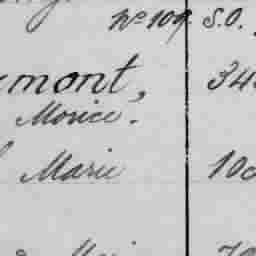 No 109. S.O.
mont, 34
Morice.
Marie 10